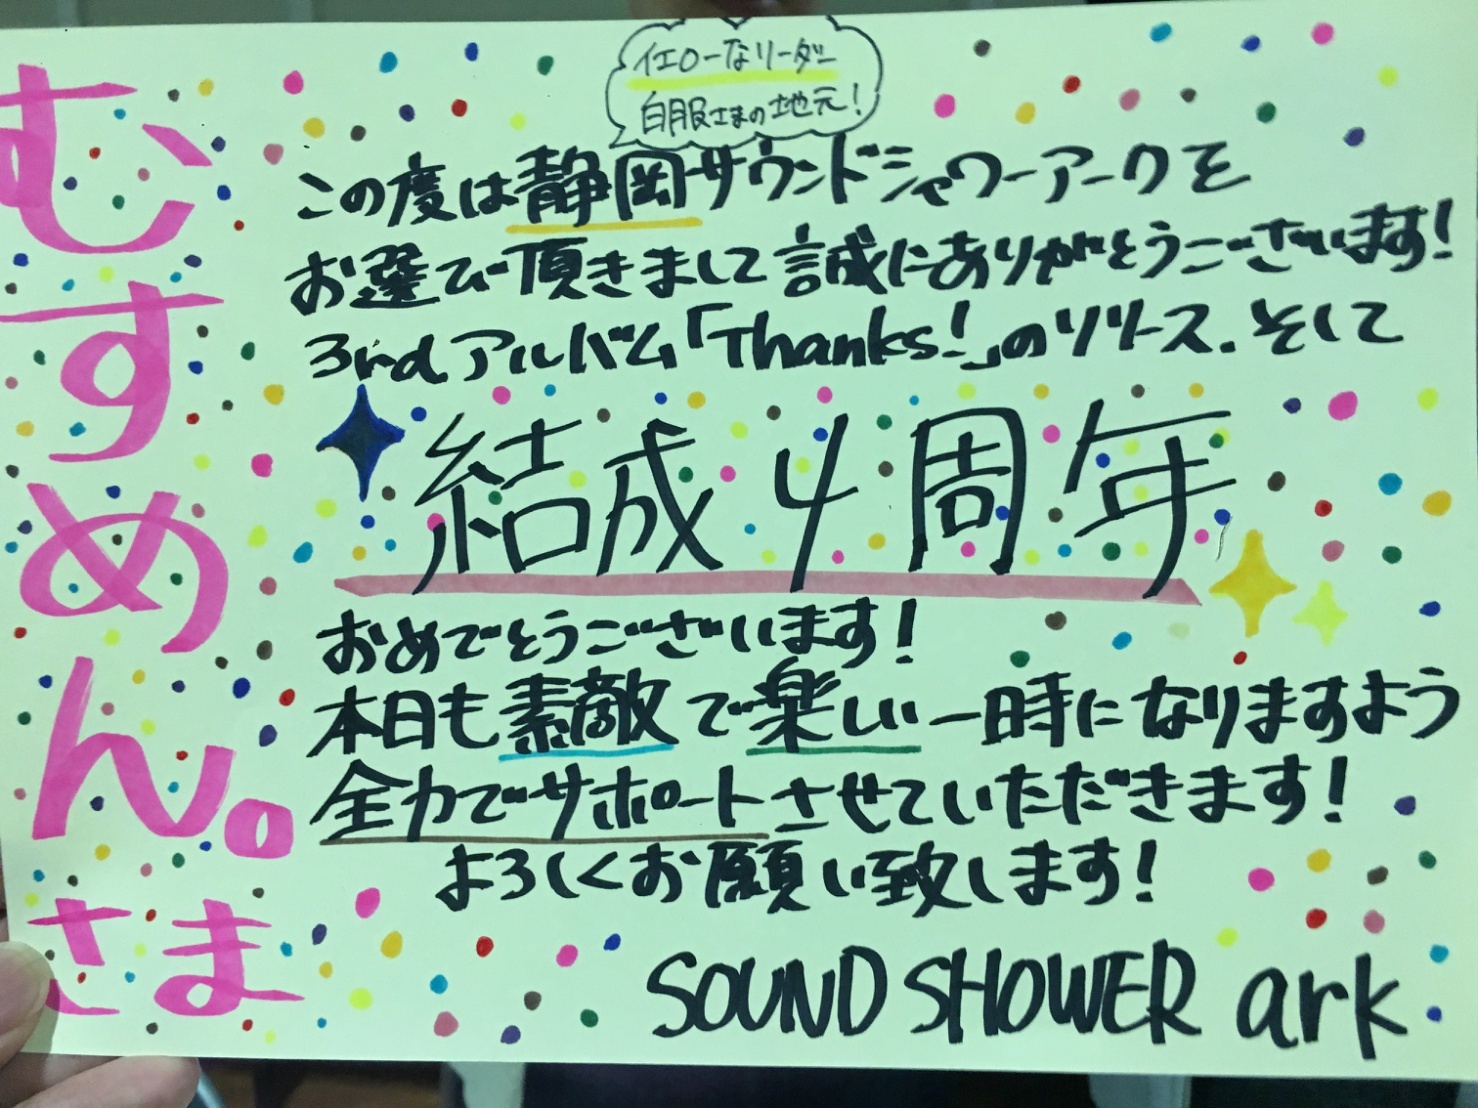 むすめん。さま
イエローなリーダー
白服さまの地元!
この度は静岡サウンドシャワーアークを
お選び頂きまして誠にありがとうございます!
3rdアルバム「Thanks!」のリリース.そして
結成4周年
おめでとうございます!
本日も素敵で楽しい一時になりますよう
全力でサポートさせていただきます!
よろしくお願い致します!
SOUND SHOWER ark